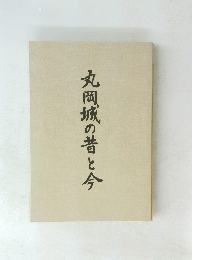 丸岡城の昔と今